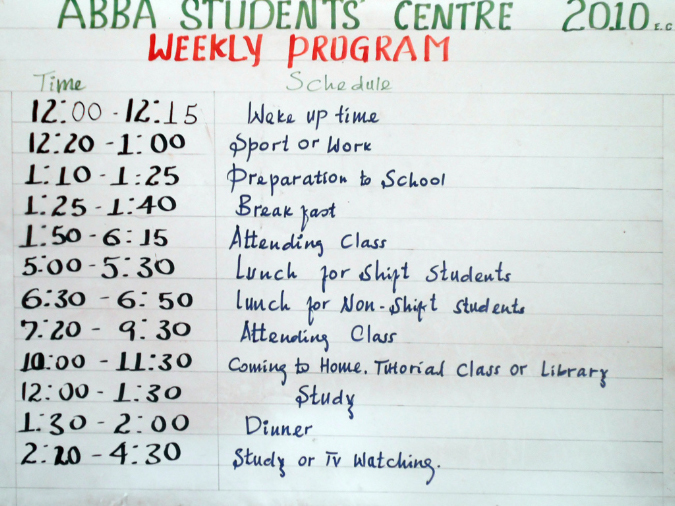 ABBA STUDENTS' CENTRE 2010 E.C
WEEKLY PROGRAM
Time Schedule
12:00 - 12:15 Wake up time
12:20 - 1:00 Sport or Work
1:10 - 1:25 Preparation to School
1:25 - 1:40 Break fast
1:50 - 6:15 Attending Class
5:00 - 5:30 Lunch for Shift Students
6:30 - 6:50 lunch for Non-Shift students
7:20 - 9:30 Attending Class
10:00 - 11:30 Coming to Home. Tutorial Class or Library
12:00 - 1:30 Study
1:30 - 2:00 Dinner
2:20 - 4:30 Study or Tv Watching.